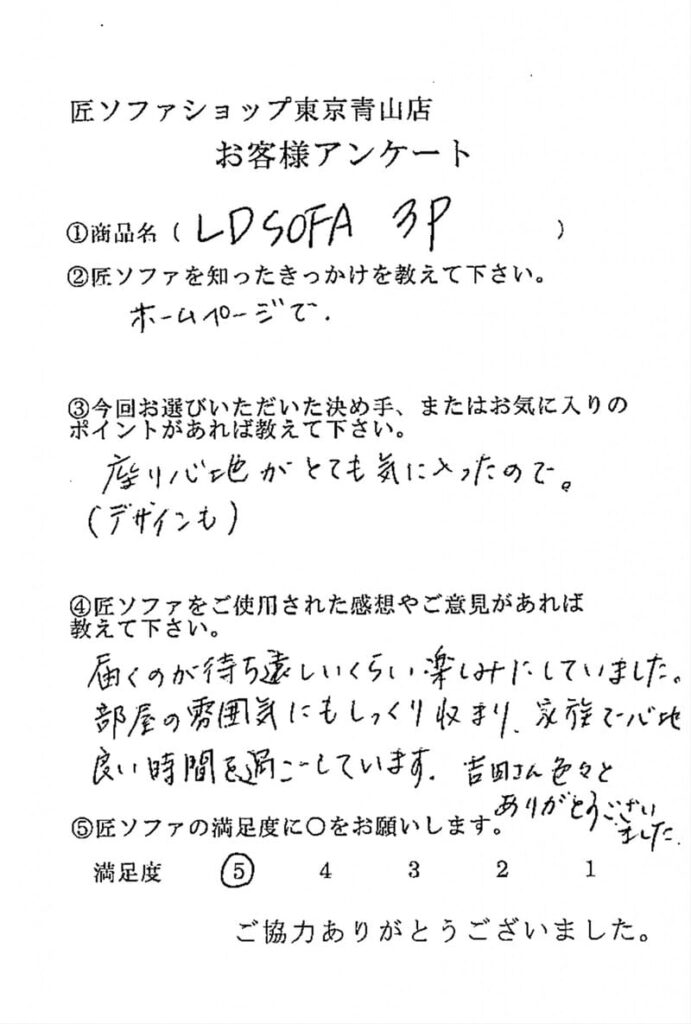 匠ソファショップ東京青山店
お客様アンケート
①商品名（ LDSOFA 3P ）
②匠ソファを知ったきっかけを教えて下さい。
ホームページで.
③今回お選びいただいた決め手、またはお気に入りの
ポイントがあれば教えて下さい。
座り心地がとても気に入ったので。
(デザインも)
④匠ソファをご使用された感想やご意見があれば
教えて下さい。
届くのが待ち遠しいくらい楽しみにしていました。
部屋の雰囲気にもしっくり収まり、家族で心地
良い時間を過ごしています. 吉田さん色々と
ありがとうござい
ました.
⑤匠ソファの満足度に〇をお願いします。
満足度 5 4 3 2 1
ご協力ありがとうございました。